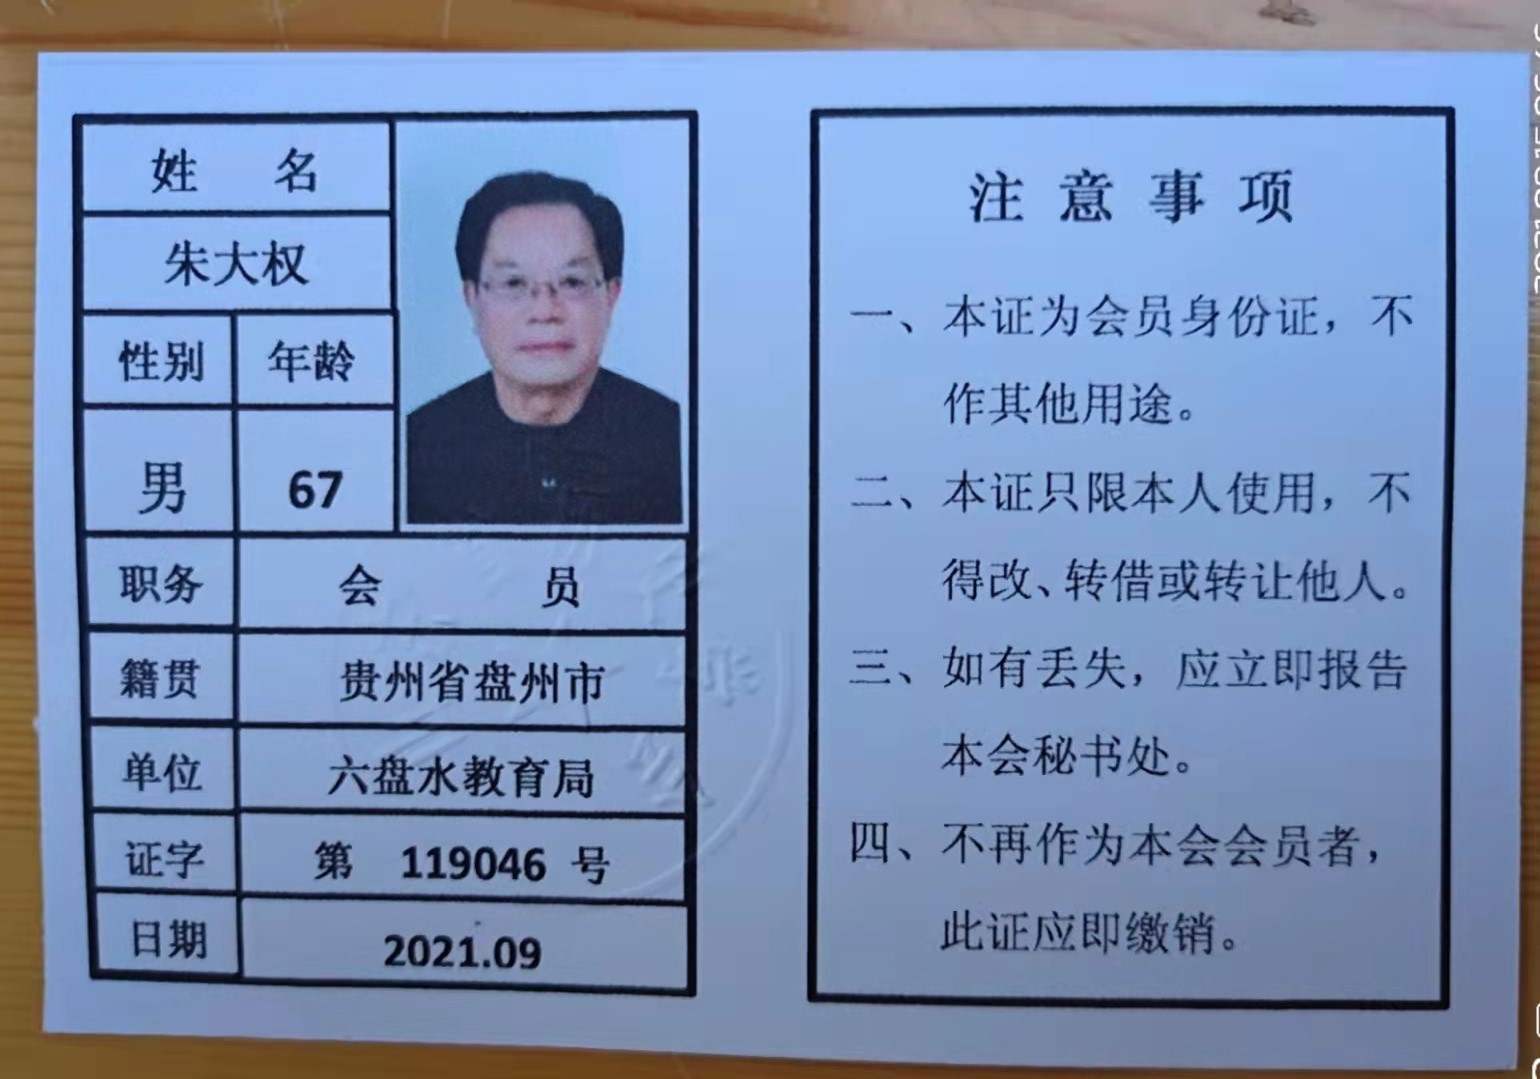 姓 名
朱大权
性别 年龄
男 67
职务 会 员
籍贯 贵州省盘州市
单位 六盘水教育局
证字 第 119046 号
日期 2021.09
注意事项
一、本证为会员身份证，不
作其他用途。
二、本证只限本人使用，不
得改、转借或转让他人。
三、如有丢失，应立即报告
本会秘书处。
四、不再作为本会会员者，
此证应即缴销。